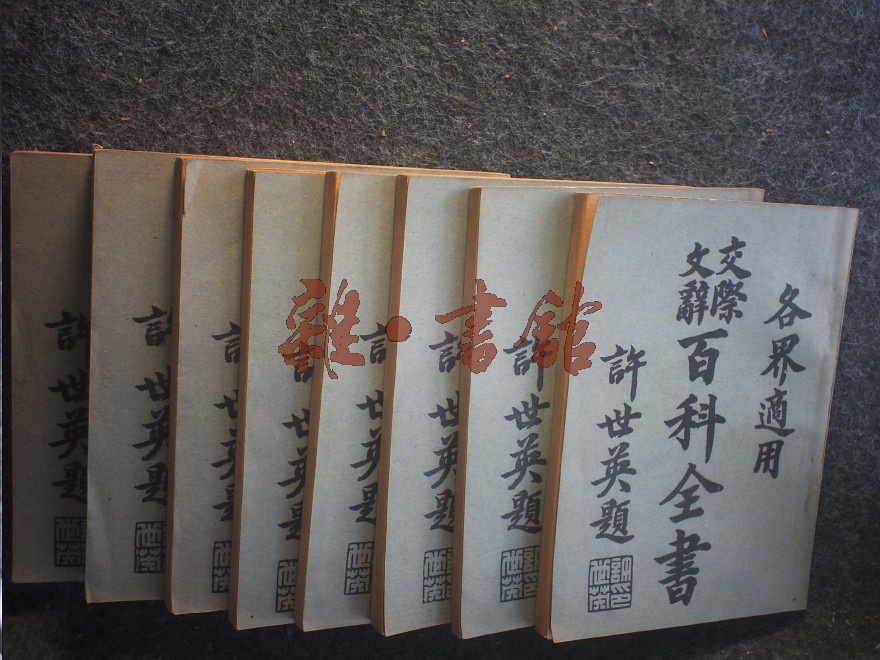 各界適用
交際
文辭
百科全書
許世英題
許印
世英
許世英題
許世英題
許世英題
許世英題
許世英題
許世英題
許世英題
雜·書館